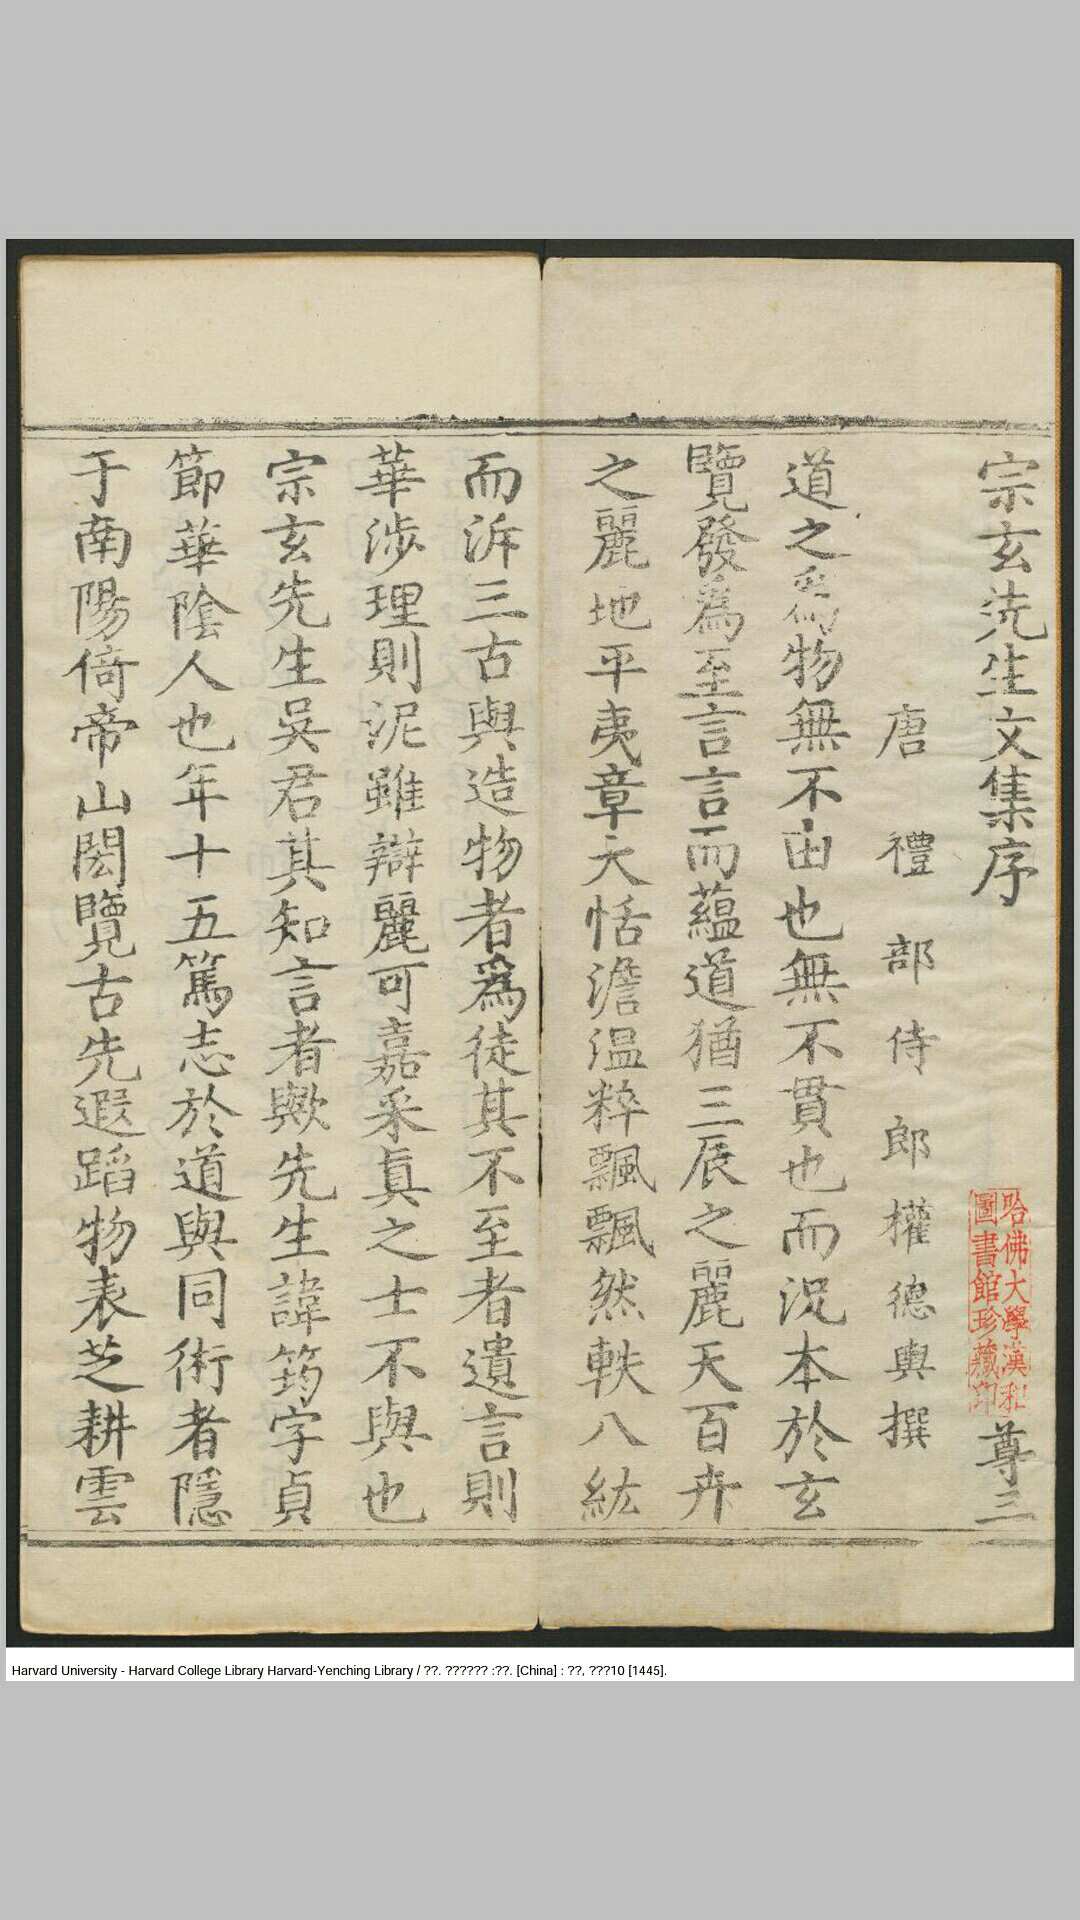 宗玄先生文集序
尊三
哈佛大學漢和
圖書館珍藏印
唐禮部侍郎權德輿撰
道之爲物無不由也無不貫也而況本於玄
覽發爲至言言而蘊道猶三辰之麗天百卉
之麗地平夷章大恬澹溫粹飄飄然軼八紘
而泝三古與造物者爲徒其不至者遺言則
華涉理則泥雖辯麗可嘉采眞之士不與也
宗玄先生吳君其知言者歟先生諱筠字貞
節華陰人也年十五篤志於道與同術者隱
于南陽倚帝山閎覽古先遐蹈物表芝耕雲
Harvard University - Harvard College Library Harvard-Yenching Library / ??. ?????? :??. [China] : ??, ???10 [1445].